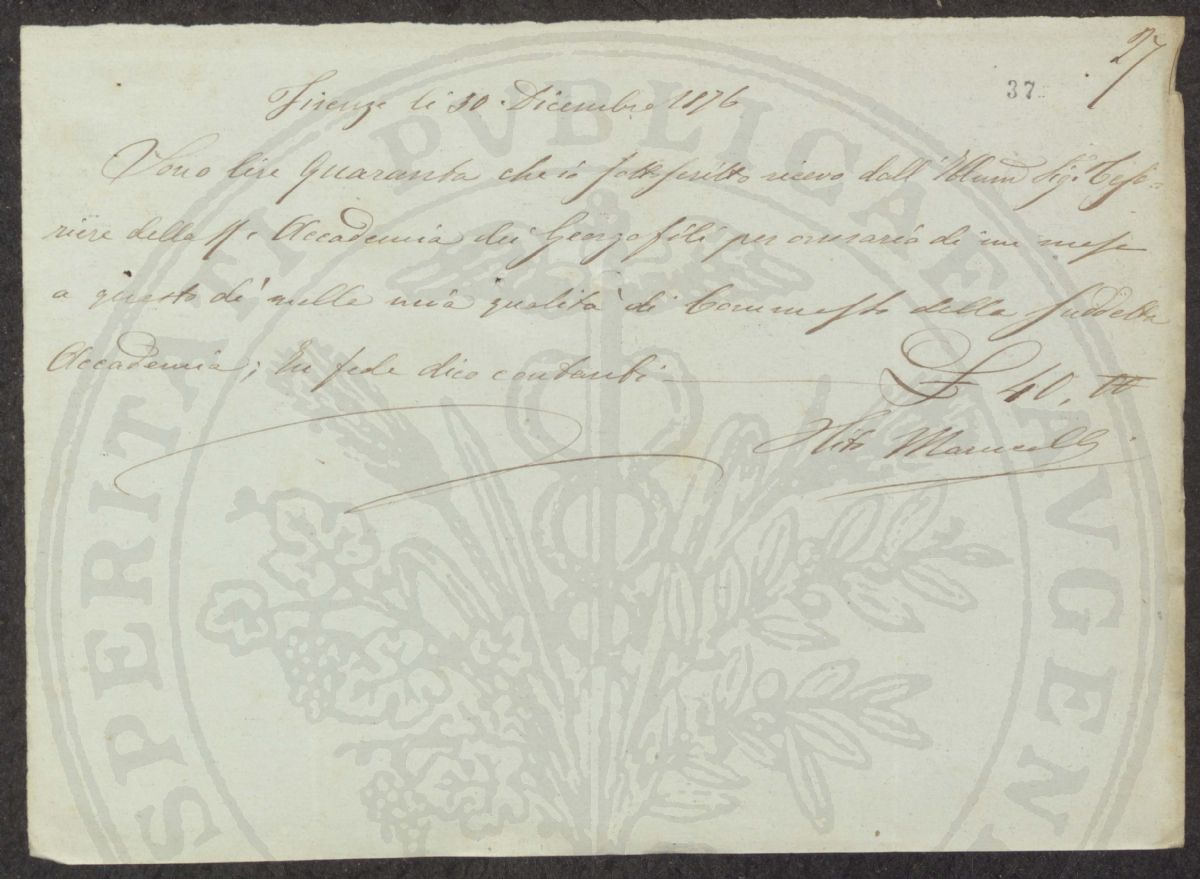 27
37
Firenze li 30. Dicembre 1876
Sono lire quaranta che io sottoscritto ricevo dall'Illum Sig.e Teso=
riere della R. Accademia dei Georgofili per onoraria di un mese
a questo dì nella mia qualità di Commesso della suddetta
Accademia; In fede dico contanti — £ 40, "
Marucelli
PROSPERITATI PVBLICAE AVGENDAE